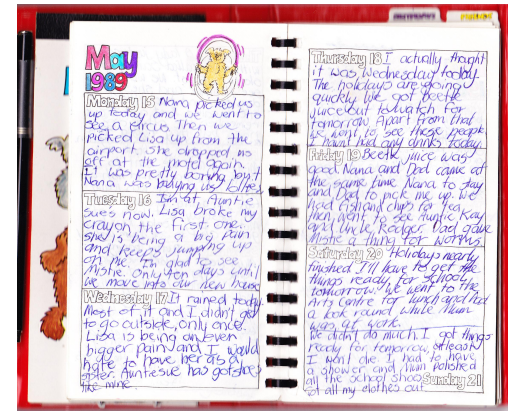 May
1989
Monday 15 Nana picked us
up today and we went to
see a circus. Then we
picked Lisa up from the
airport. she dropped us
off at the motel again.
It was pretty boring but
Nana was buying us lollies.
Tuesday 16 I'm at Auntie
sues now. Lisa broke my
crayon the first one.
she is being a big pain
and keeps jumping up
on me. I'm glad to see
Mistie. only ten days until
we move into our new house
Wednesday 17 It rained today.
Most of it and I didn't get
to go outside, only once.
Lisa is being an even
bigger pain and I would
hate to have her as a
sister. Auntie sue has got shoes
like mine.
Thursday 18 I actually thought
it was Wednesday today.
The holidays are going
quickly. We got Beetle
juice out to watch for
tomorrow. Apart from that
we went to see these people.
I havnt had any drinks today.
Friday 19 Beetle juice was
good. Nana and Dad came at
the same time. Nana to stay
and Dad to pick me up. We
had fish and chips for tea
then went to see Auntie Kay
and Uncle Rodger. Dad gave
Mistie a thing for worms
Saturday 20 Holidays nearly
finished. I'll have to get the
things ready for school
tomorrow. We went to the
Arts Centre for lunch and had
a look round while Mum
was at work.
We didn't do much. I got things
ready for tomorrow, at least
I won't die. I had to have
a shower and Mum polished
all the school shoes
got all my clothes out. Sunday 21